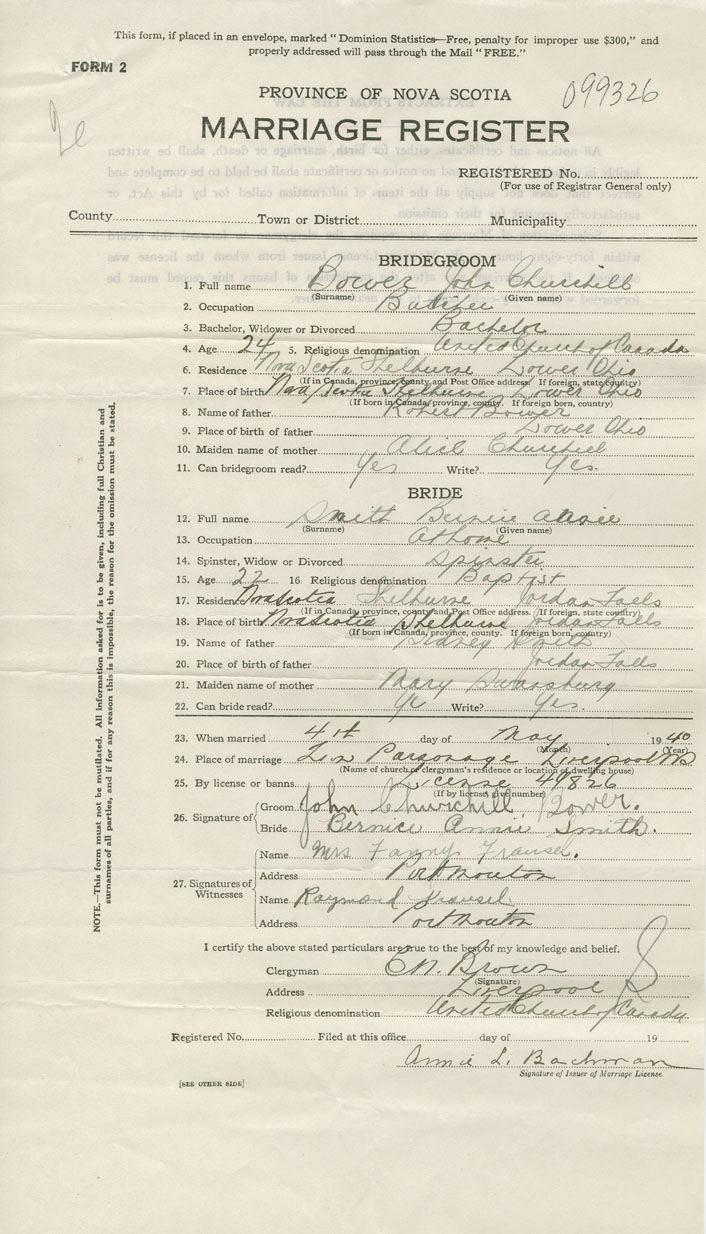 This form, if placed in an envelope, marked "Dominion Statistics—Free, penalty for improper use $300," and
properly addressed will pass through the Mail "FREE."
FORM 2
PROVINCE OF NOVA SCOTIA
099326
MARRIAGE REGISTER
REGISTERED No.
(For use of Registrar General only)
County Town or District Municipality
BRIDEGROOM
1. Full name Bower John Churchill
(Surname) (Given name)
2. Occupation Butcher
3. Bachelor, Widower or Divorced Bachelor
4. Age 24 5. Religious denomination United Church of Canada
6. Residence Nova Scotia Shelburne Lower Ohio
(If in Canada, province, county, and Post Office address. If foreign, state, country)
7. Place of birth Nova Scotia Shelburne Lower Ohio
(If born in Canada, province, county. If foreign born, country)
8. Name of father Robert Bower
9. Place of father Lower Ohio
10. Maiden name of mother Churchill
11. Can bridegroom read? Yes Write? Yes.
BRIDE
12. Full name Smith Bernice Annie
(Surname) (Given name)
13. Occupation At home
14. Spinster, Widow or Divorced Spinster
15. Age 22 16. Religious denomination Baptist
17. Residence Nova Scotia Shelburne Jordan Falls
(If in Canada, province, county and Post Office address. If foreign, state, country)
18. Place of birth Nova Scotia Shelburne Jordan Falls
(If born in Canada, province, county. If foreign born, country)
19. Name of father Sidney Smith
20. Place of birth of father Jordan Falls
21. Maiden name of mother Mary Swansburg
22. Can bride read? Write? Yes.
23. When married day of May 1940
(Month) (Year)
24. Place of marriage Parsonage Liverpool NS
(Name of church or clergyman's residence or location of dwelling house)
25. By license or banns License 49826
(If by license, give number)
26. Signature of
Groom John Churchill Bower.
Bride Bernice Annie Smith.
27. Signatures of Witnesses
Name Mrs Fanny
Address Port Mouton
Name Raymond
Address Port Mouton
I certify the above stated particulars are true to the best of my knowledge and belief.
Clergyman Brown
(Signature)
Address Liverpool
Religious denomination United Church of Canada
Registered No. Filed at this office day of 19
Annie L. Bachman
Signature of Issuer of Marriage License.
[SEE OTHER SIDE]
NOTE.—This form must not be mutilated. All information asked for is to be given, including full Christian and
surnames of all parties, and if for any reason this is impossible, the reason for the omission must be stated.